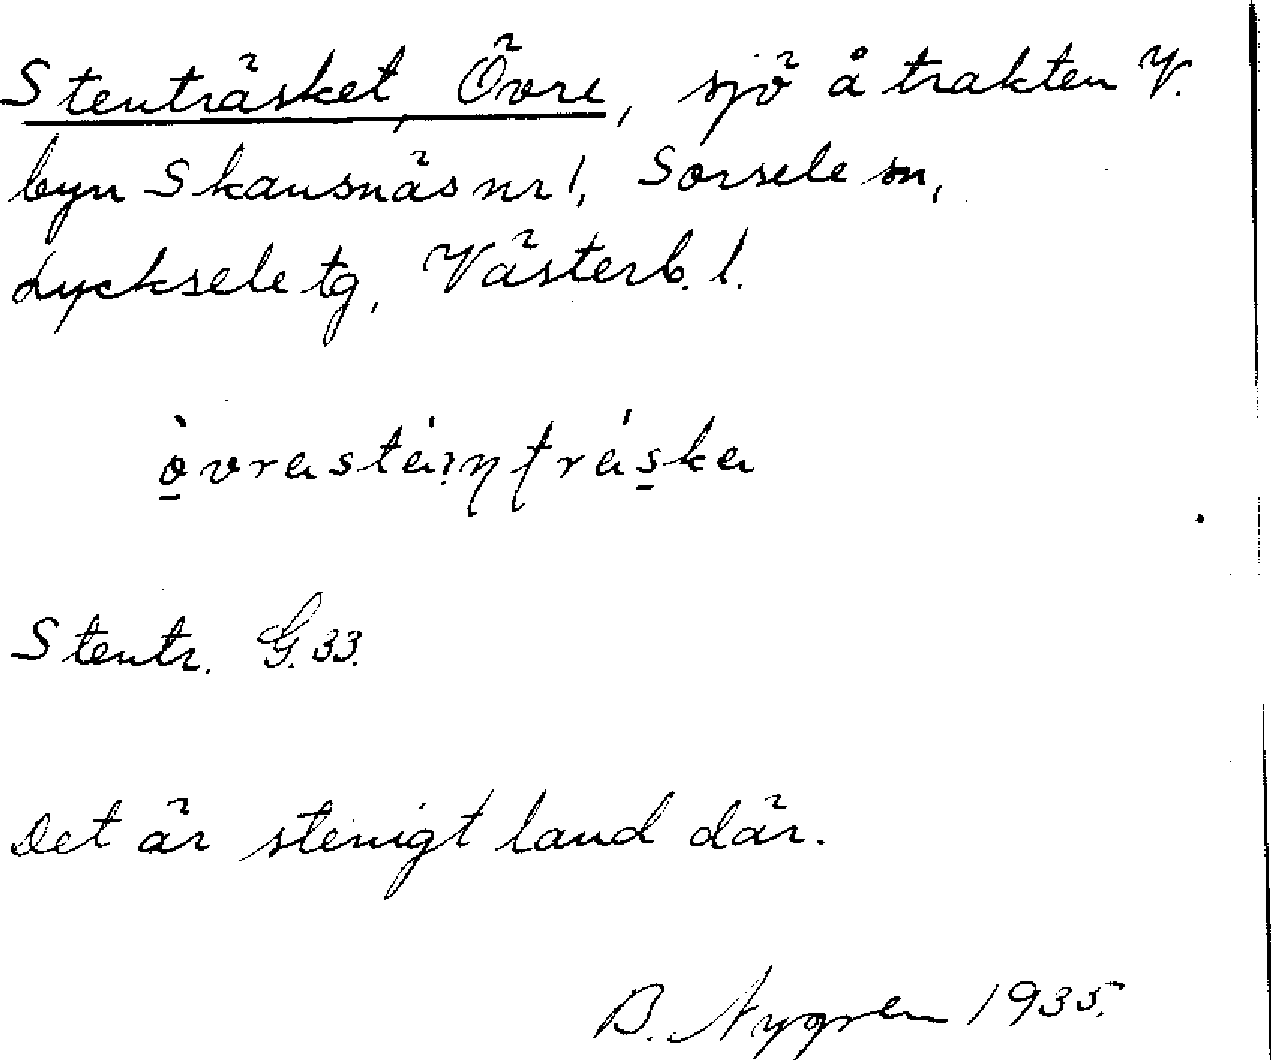 Stenträsket, Övre, sjö å trakten V.
byn Skansnäs nr 1, Sorsele sn,
Lycksele tg, Västerb. l.
Stentr. G. 33.
Det är stenigt land där.
B. Nygren 1935.